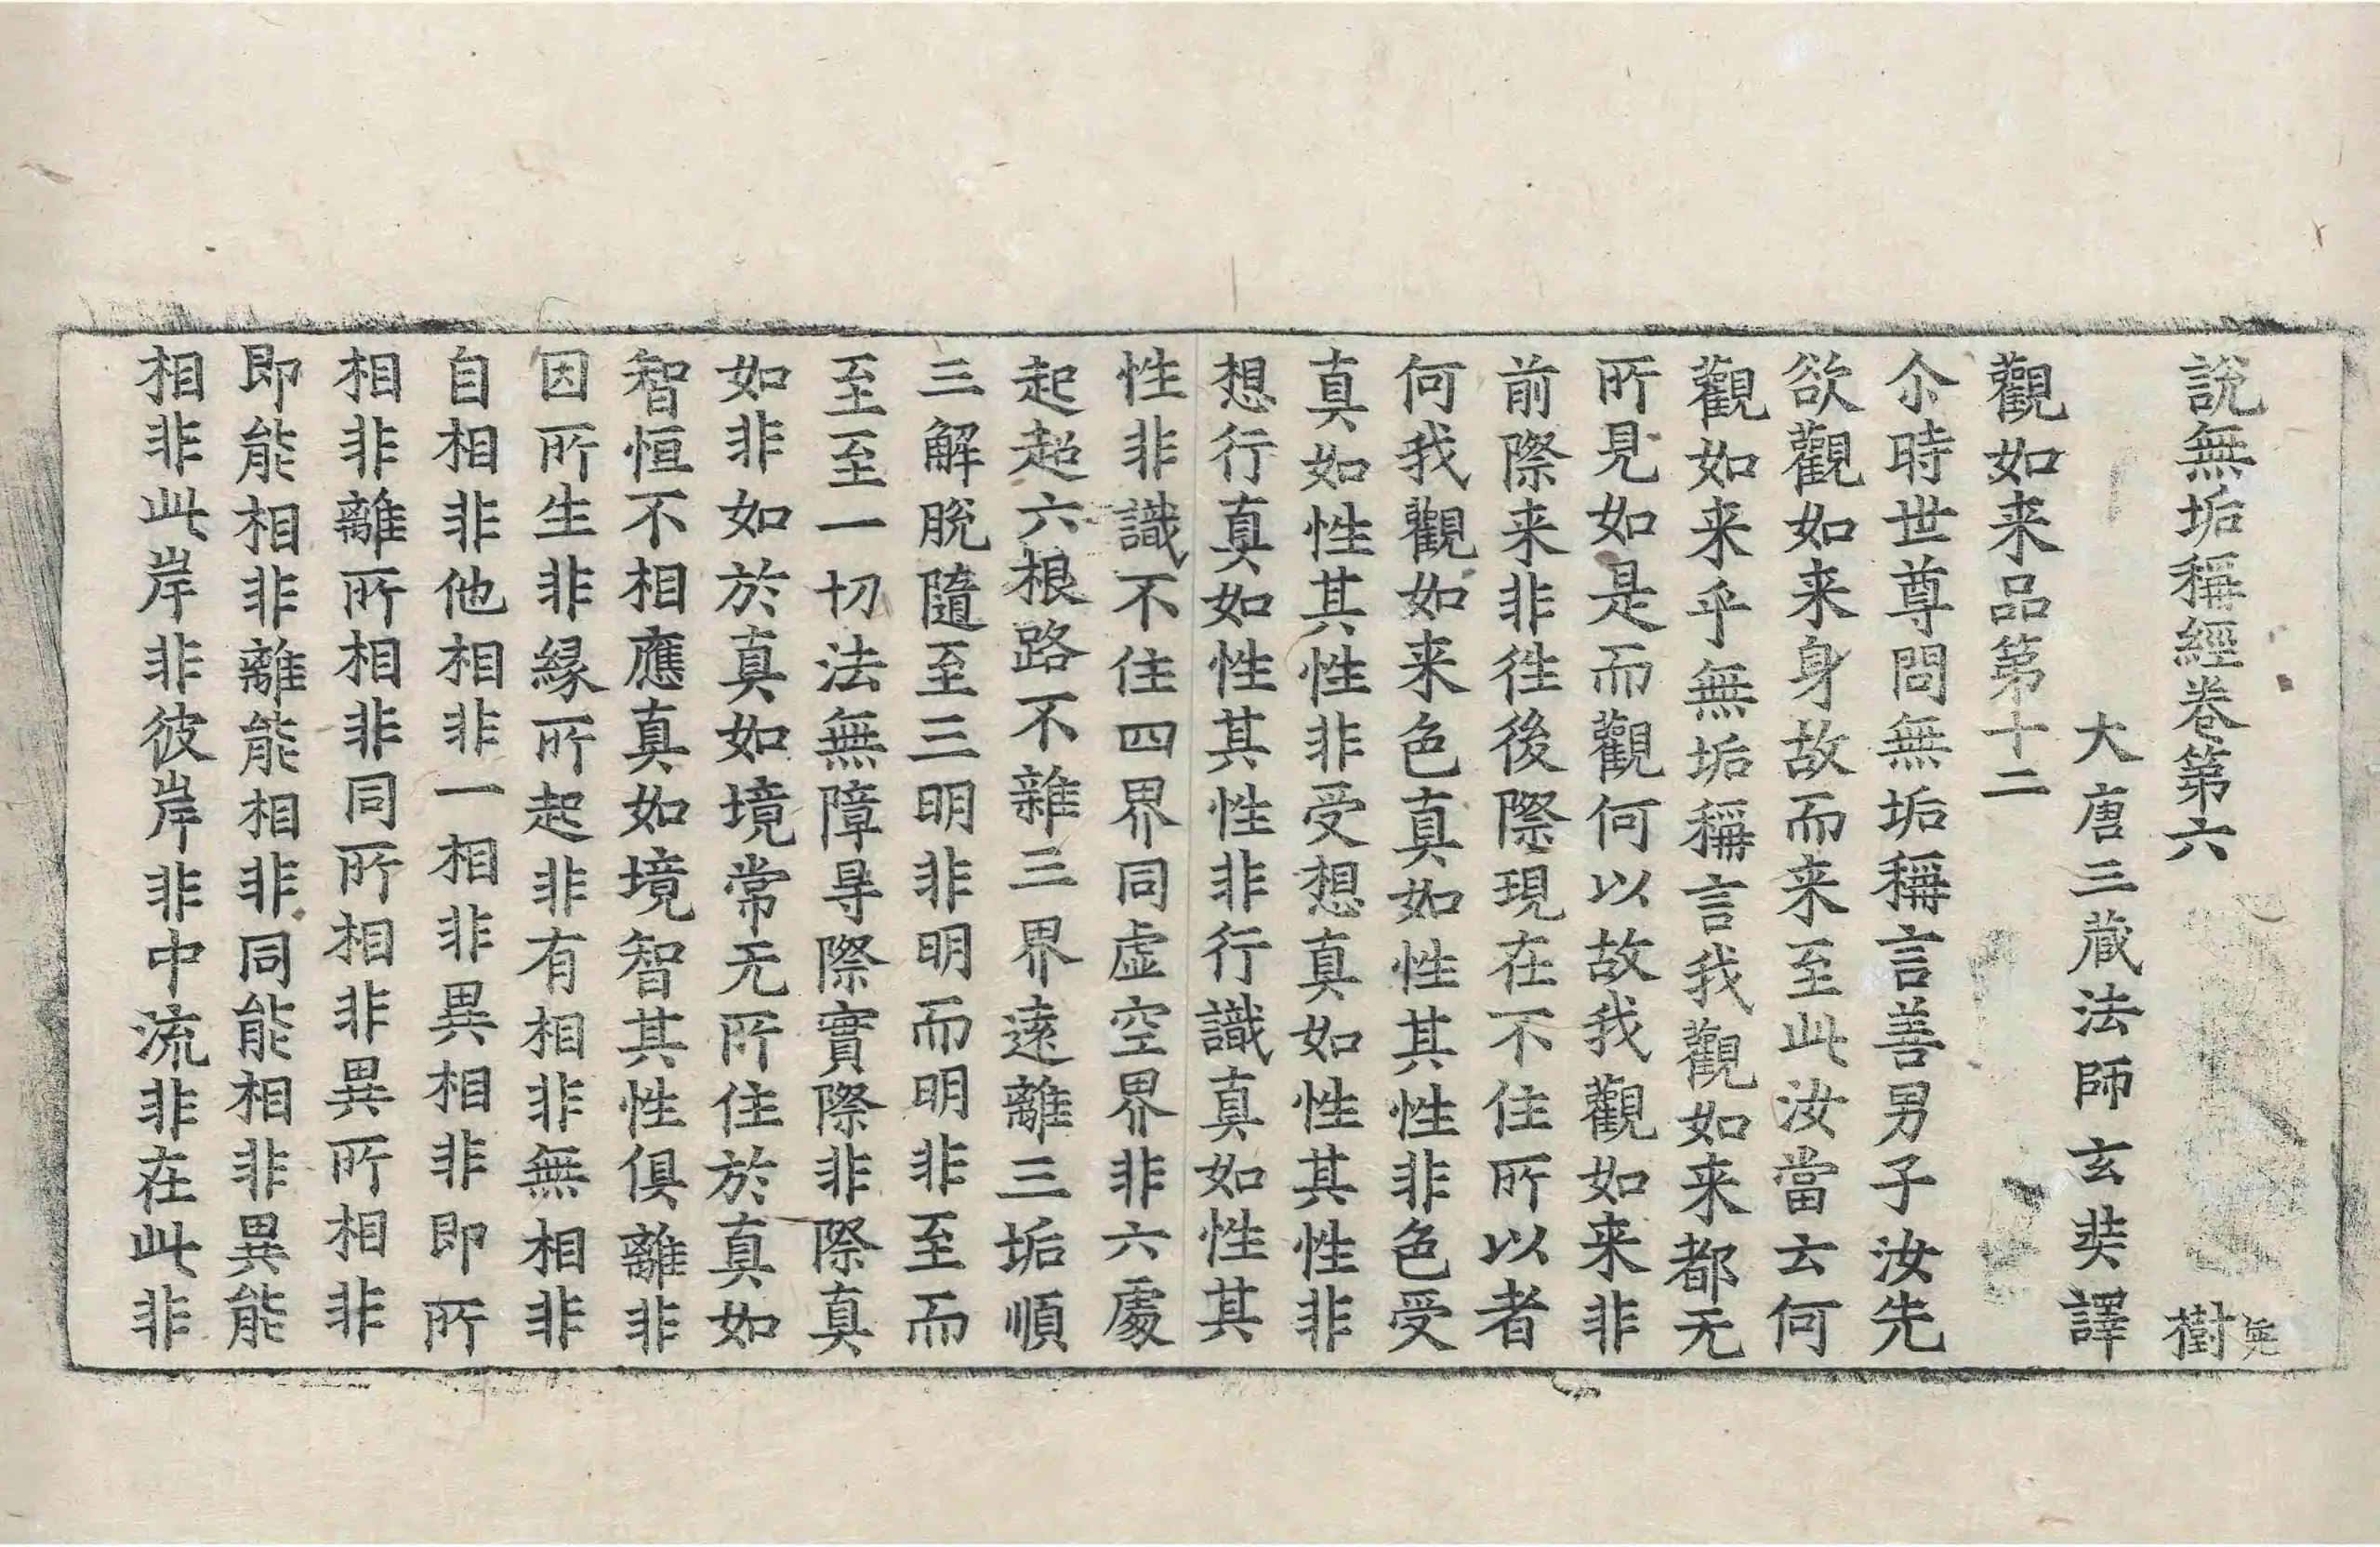 說無垢稱經卷第六 樹
大唐三藏法師玄奘譯
觀如来品第十二
尒時世尊問無垢稱言善男子汝先
欲觀如来身故而来至此汝當云何
觀如来乎無垢稱言我觀如来都无
所見如是而觀何以故我觀如来非
前際来非徃後際現在不住所以者
何我觀如来色真如性其性非色受
真如性其性非受想真如性其性非
想行真如性其性非行識真如性其
性非識不住四界同虛空界非六處
起超六根路不雜三界遠離三垢順
三解脫隨至三明非明而明非至而
至至一切法無障㝵際實際非際真
如非如於真如境常无所住於真如
智恒不相應真如境智其性俱離非
因所生非緣所起非有相非無相非
自相非他相非一相非異相非即所
相非離所相非同所相非異所相非
即能相非離能相非同能相非異能
相非此岸非彼岸非中流非在此非